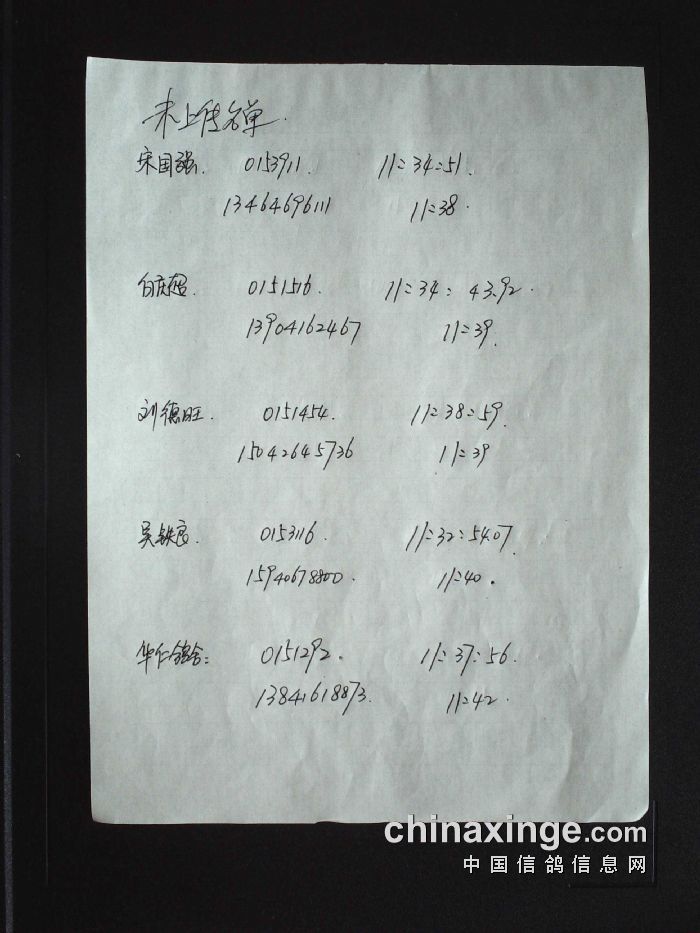 未上传名单.
宋国强. 0153911. 11:34:51.
13464696111 11:38.
白庆超. 0151516. 11:34:43.92.
13904162467 11:39.
刘德旺. 0151454. 11:38:59.
15042645736 11:39
吴铁良. 0153116. 11:32:54.07.
15940678800. 11:40.
华仁鸽舍: 0151292. 11:37:56.
13841618873. 11:42.
chinaxinge.com
中国信鸽信息网